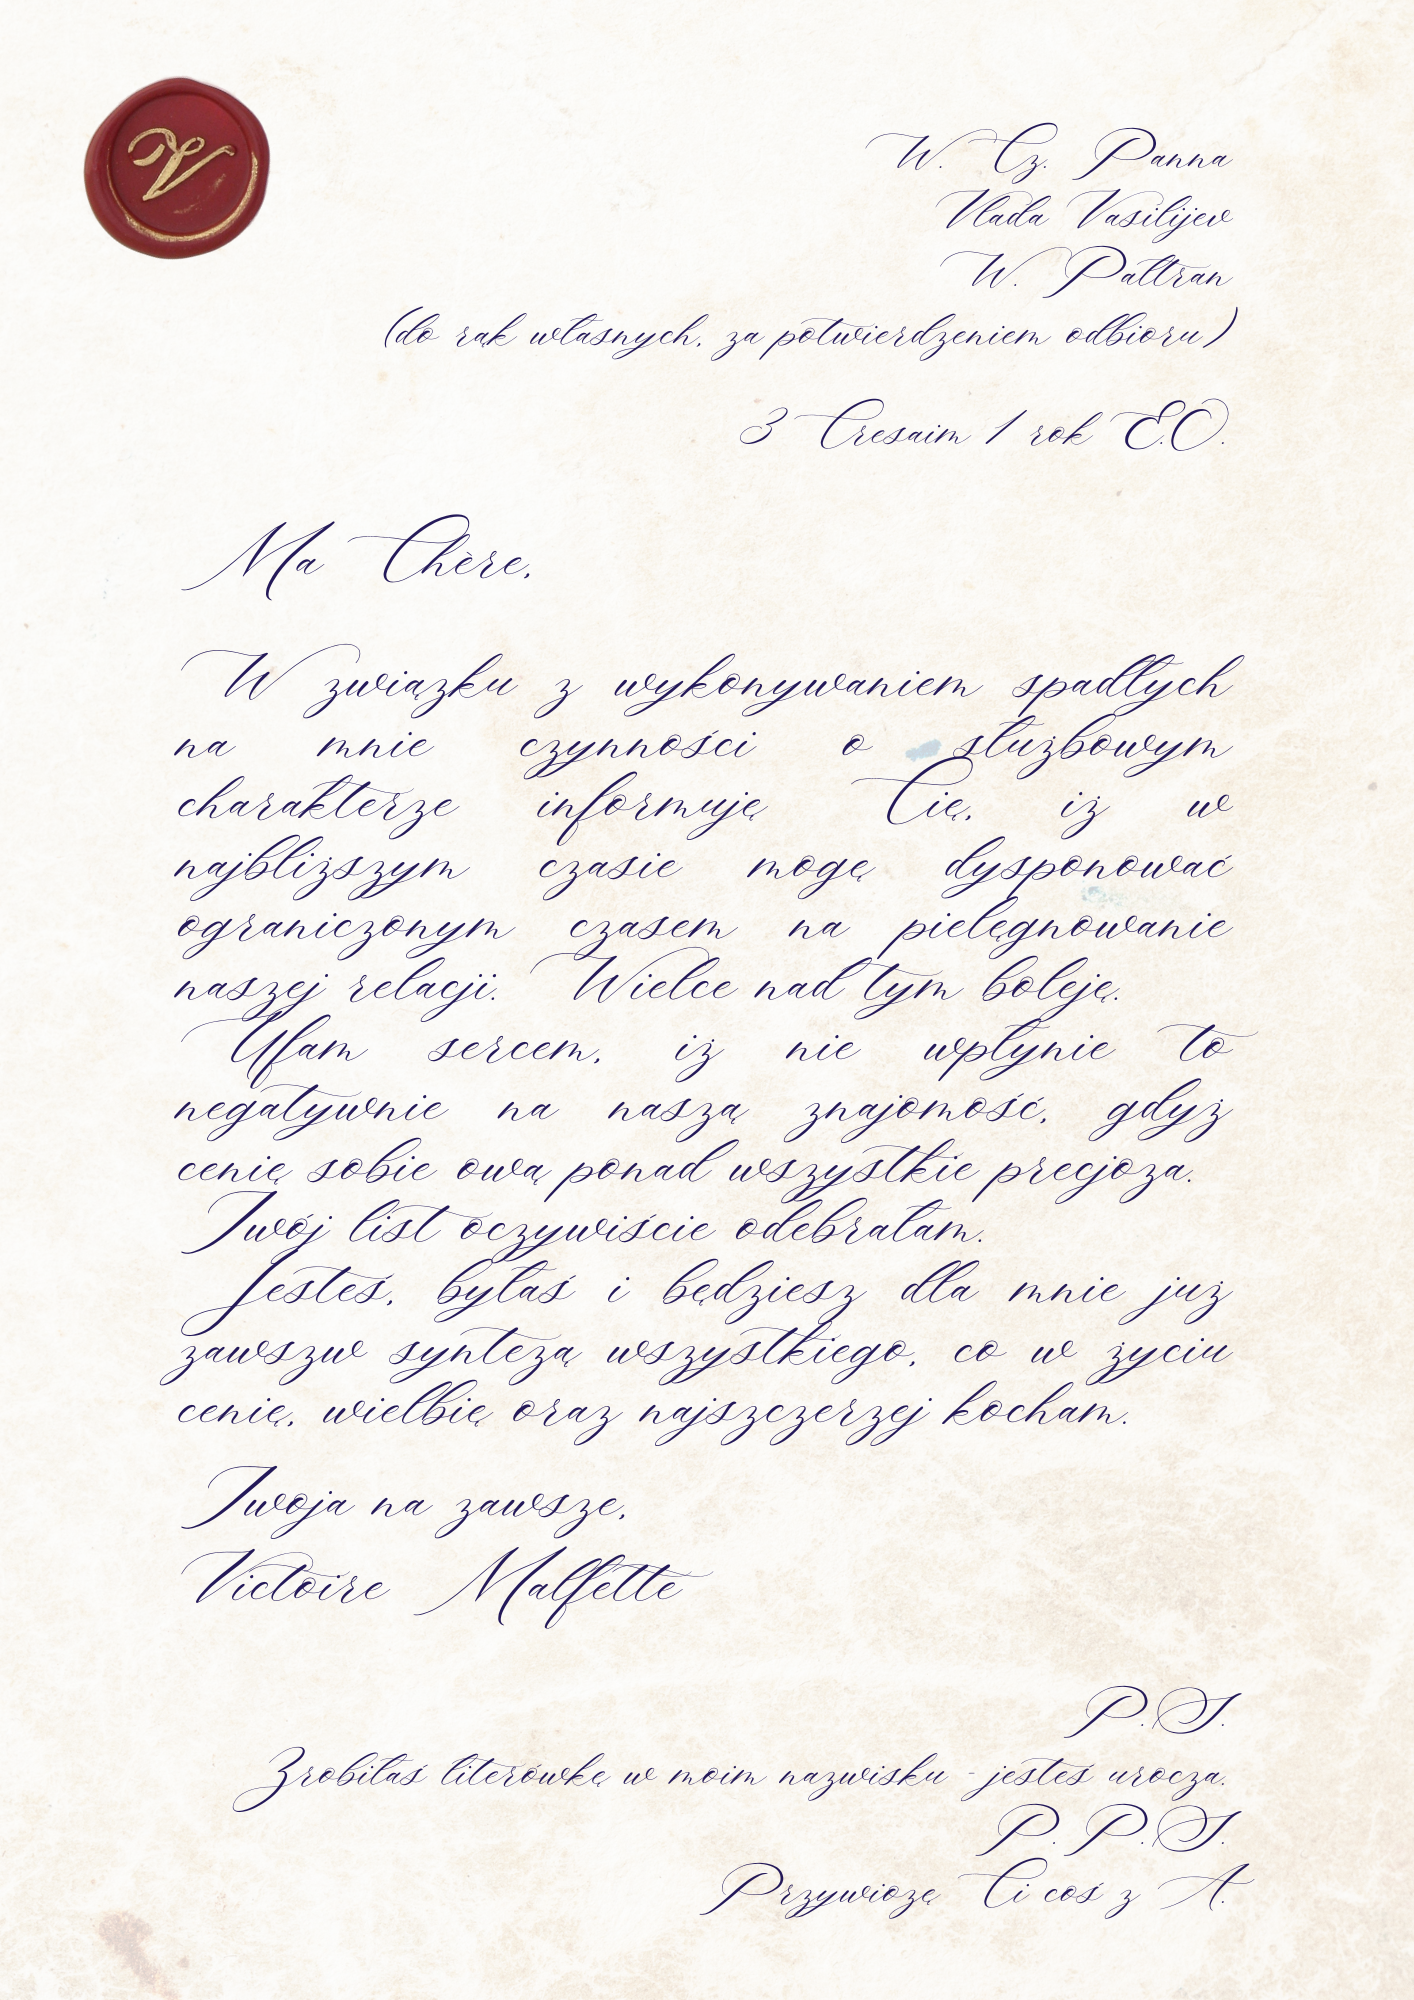 V
W. Cz. Panna
Vlada Vasilijev
W. Paltran
(do rąk własnych, za potwierdzeniem odbioru)
3 Cresaim 1 rok E.O.
Ma Chère,
W związku z wykonywaniem spadłych
na mnie czynności o służbowym
charakterze informuję Cię, iż w
najbliższym czasie mogę dysponować
ograniczonym czasem na pielęgnowanie
naszej relacji. Wielce nad tym boleję.
Ufam sercem, iż nie wpłynie to
negatywnie na naszą znajomość, gdyż
cenię sobie ową ponad wszystkie precjoza.
Twój list oczywiście odebrałam.
Jesteś, byłaś i będziesz dla mnie już
zawszw syntezą wszystkiego, co w życiu
cenię, wielbię oraz najszczerzej kocham.
Twoja na zawsze,
Victoire Malfette
P.S.
Zrobiłaś literówkę w moim nazwisku - jesteś urocza.
P. P.S.
Przywiozę Ci coś z A.